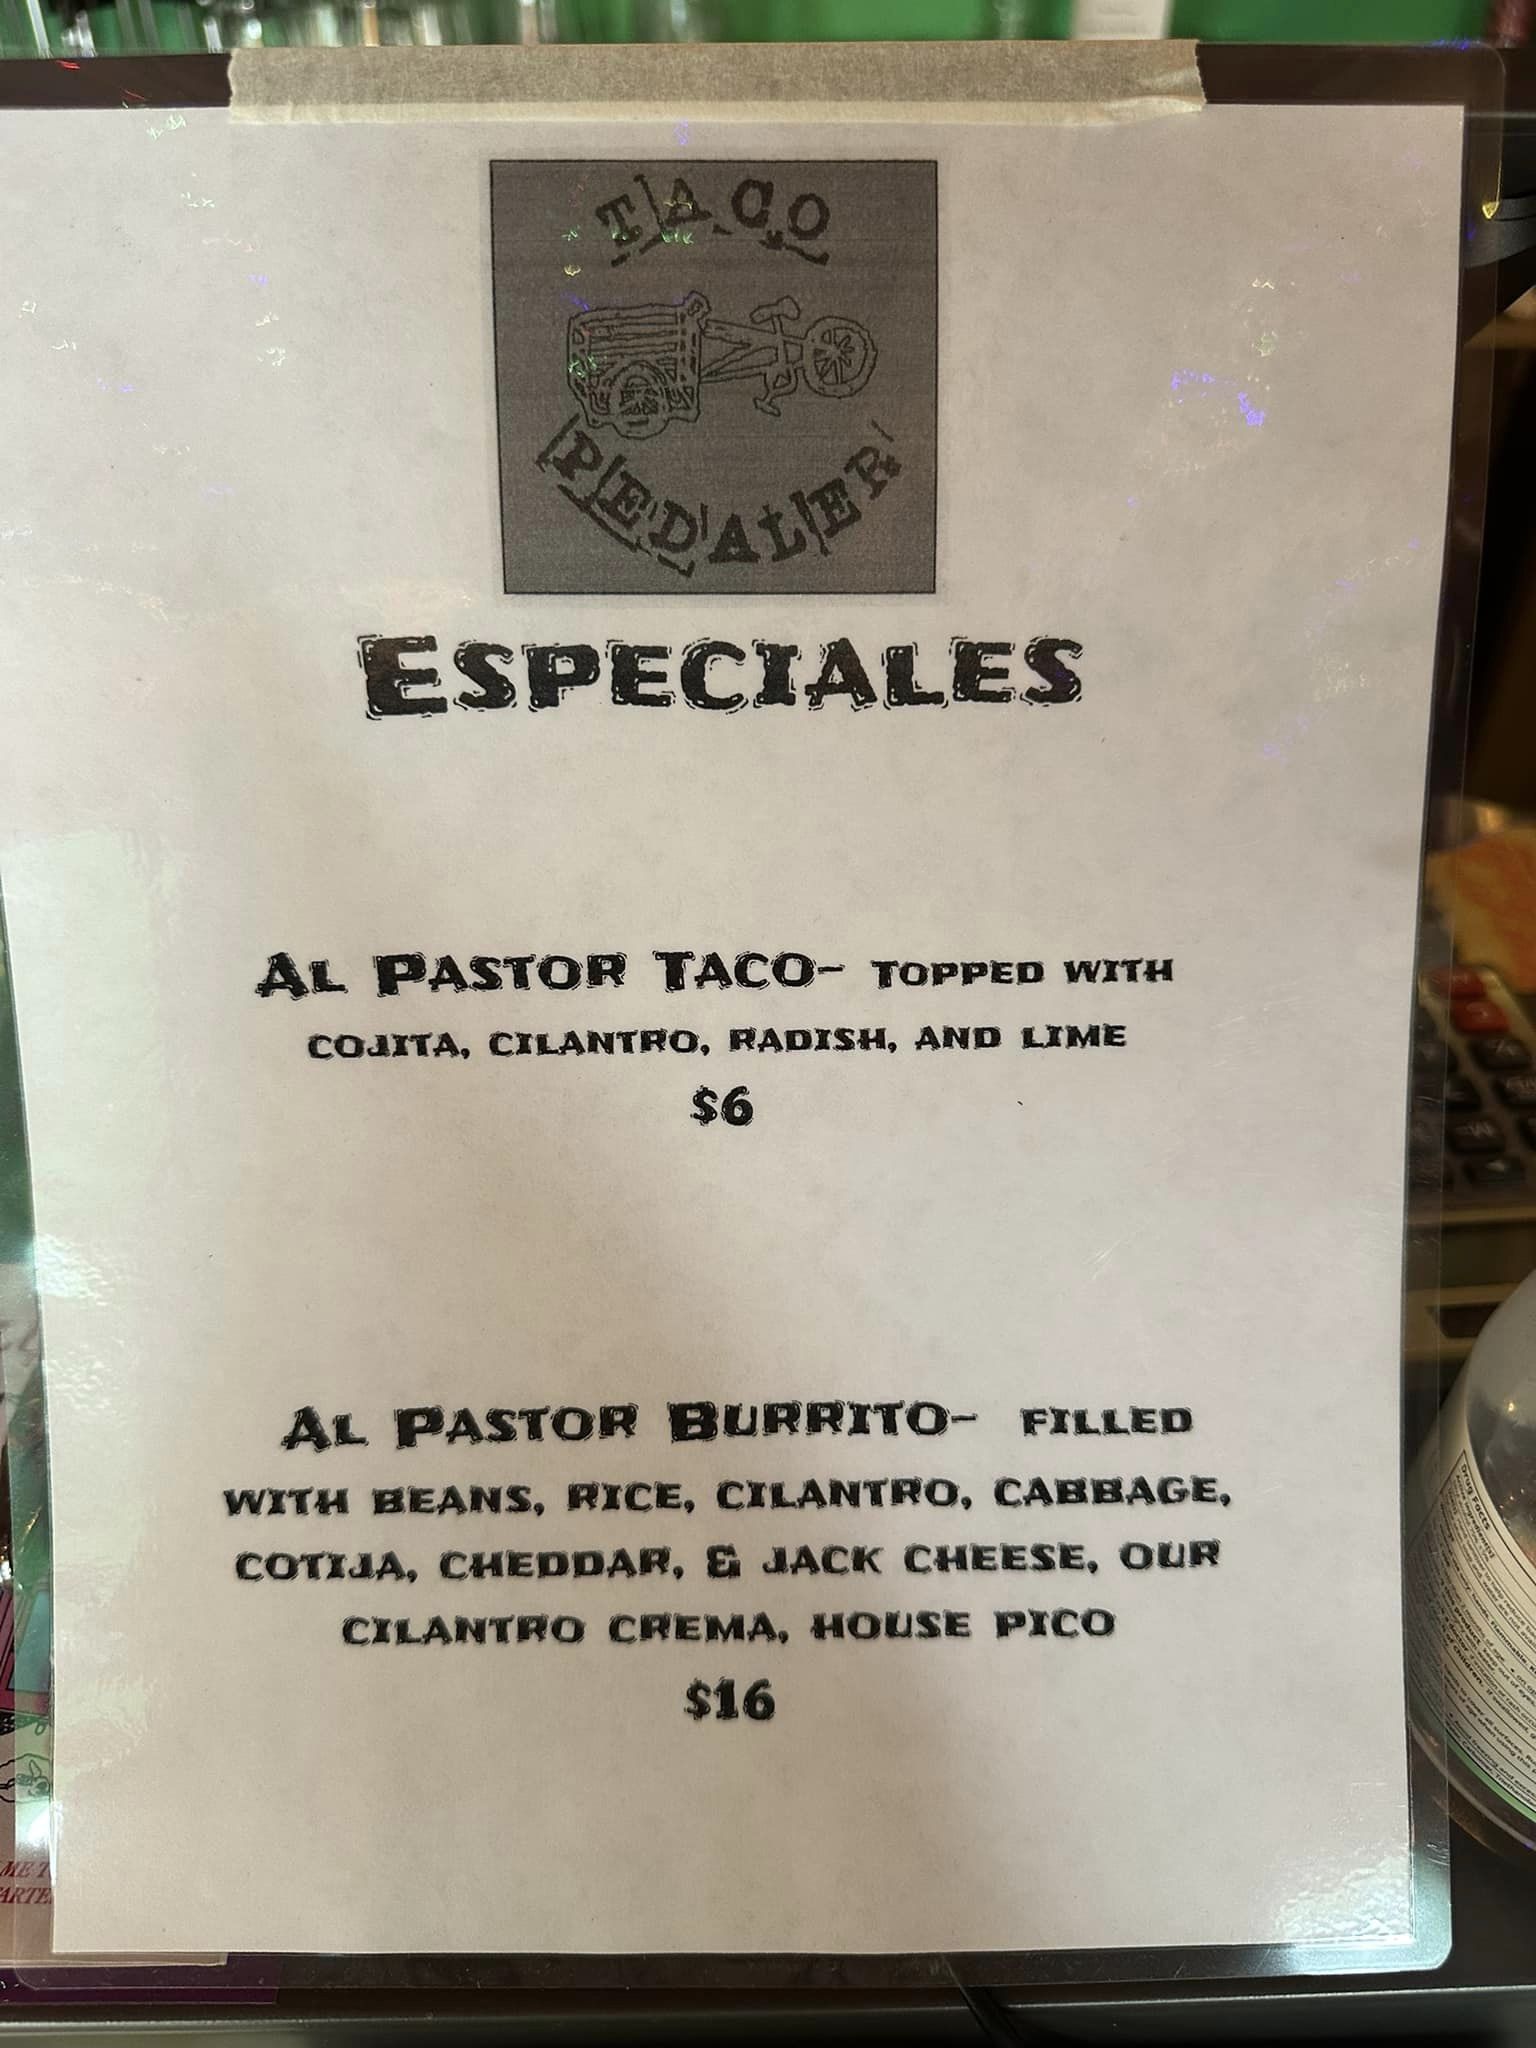 TACO
PEDALER
ESPECIALES
AL PASTOR TACO- TOPPED WITH
COJITA, CILANTRO, RADISH, AND LIME
$6
AL PASTOR BURRITO- FILLED
WITH BEANS, RICE, CILANTRO, CABBAGE,
COTIJA, CHEDDAR, & JACK CHEESE, OUR
CILANTRO CREMA, HOUSE PICO
$16
Drug Facts